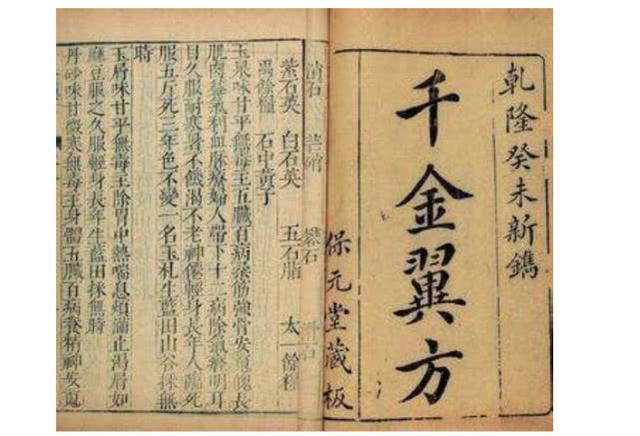 乾隆癸未新鐫
千金翼方
保元堂藏板
芒硝 礬石 滑石
紫石英 白石英 五石脂 太一餘糧
禹餘糧 石中黃子
玉泉味甘平無毒主五臟百病柔筋強骨安魂魄長
肌肉益氣利血脉療婦人帶下十二病除氣癃明耳
目久服耐寒暑不饑渴不老神僊輕身長年人臨死
服五斤死三年色不變一名玉札生藍田山谷採無
時
玉屑味甘平無毒主除胃中熱喘息煩滿止渴屑如
麻豆服之久服輕身長年生藍田採無時
丹砂味甘微寒無毒主身體五臟百病養精神安魂